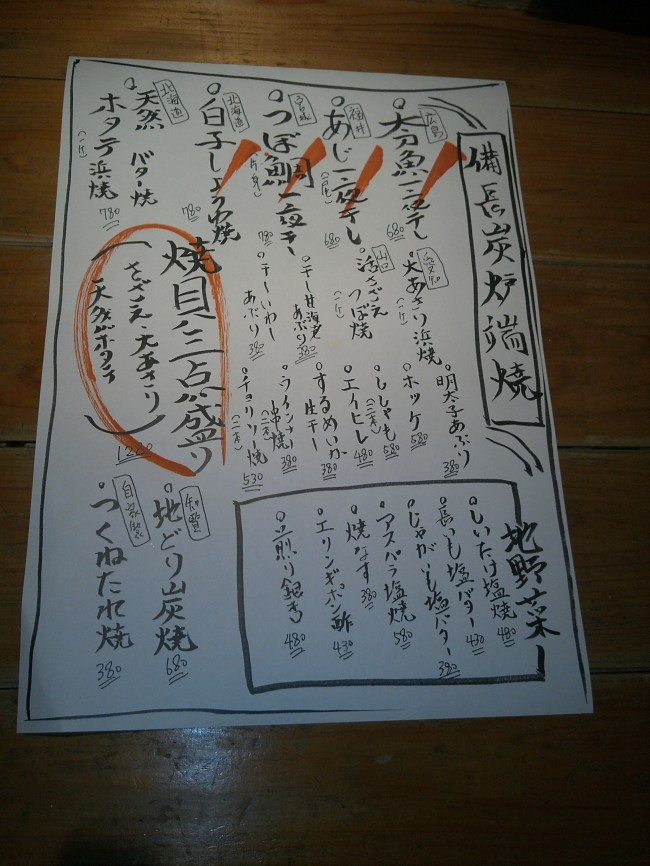 備長炭炉端焼
広島
太刀魚一夜干し
680
福井
あじ一夜干し
680
宮城
つぼ鯛一夜干し
780
北海道
白子しょうゆ焼
780
北海道
天然ホタテ
バター焼
浜焼
780
愛知
大あさり浜焼
山口
活さざえ
つぼ焼
干し甘海老
あぶり
380
干しいわし
あぶり
380
明太子あぶり
380
ホッケ
580
ししゃも
580
エイヒレ
480
するめいか
生干し
380
ウインナー
串焼
380
チョリソー焼
530
焼貝三点盛り
さざえ・大あさり
天然ホタテ
地野菜
しいたけ塩焼
480
長いも塩バター
430
じゃがいも塩バター
380
アスパラ塩焼
580
焼なす
380
エリンギポン酢
430
煎り銀杏
480
地どり炭焼
680
自家製
つくねたれ焼
380